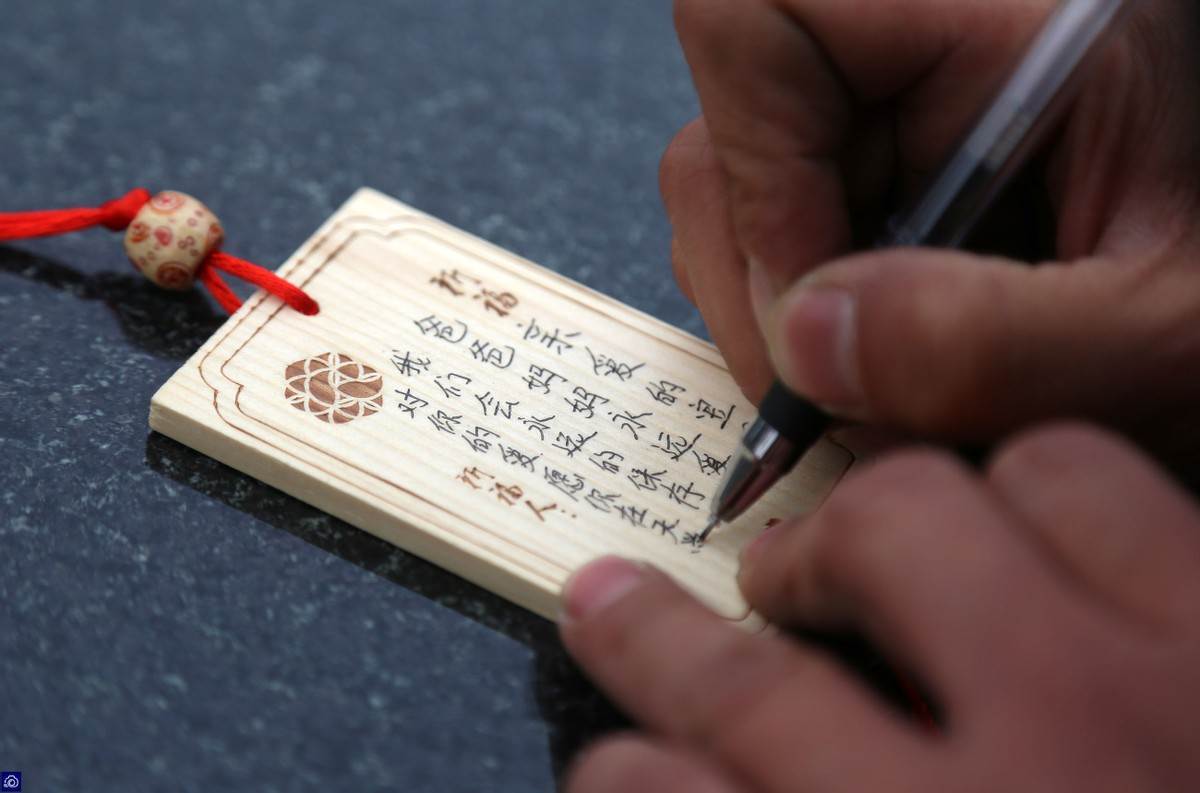 祈福:亲爱的宝
爸爸妈妈永远爱
我们会永远的保存
对你的爱愿你在天
祈福人: